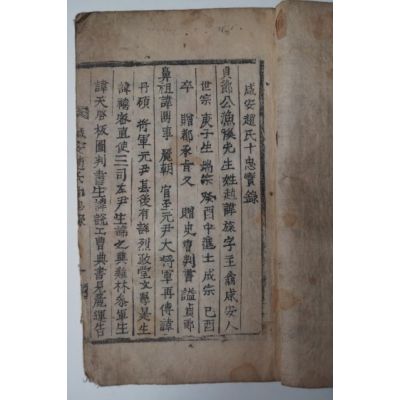 咸安趙氏十忠實錄
貞節公漁溪先生姓趙諱旅字主翁咸安人
世宗 庚子生 端宗癸酉中進士 成宗 己酉
卒 贈都承旨又 贈吏曹判書諡貞節
鼻祖諱鼎事 麗朝官至元尹大將軍再傳諱
丹碩 將軍元尹其後有諱烈政堂文學是生
諱禧密直使三司左尹生諱之興雞林參軍生
諱天啓版圖判書生諱悅工曹典書見麗運告